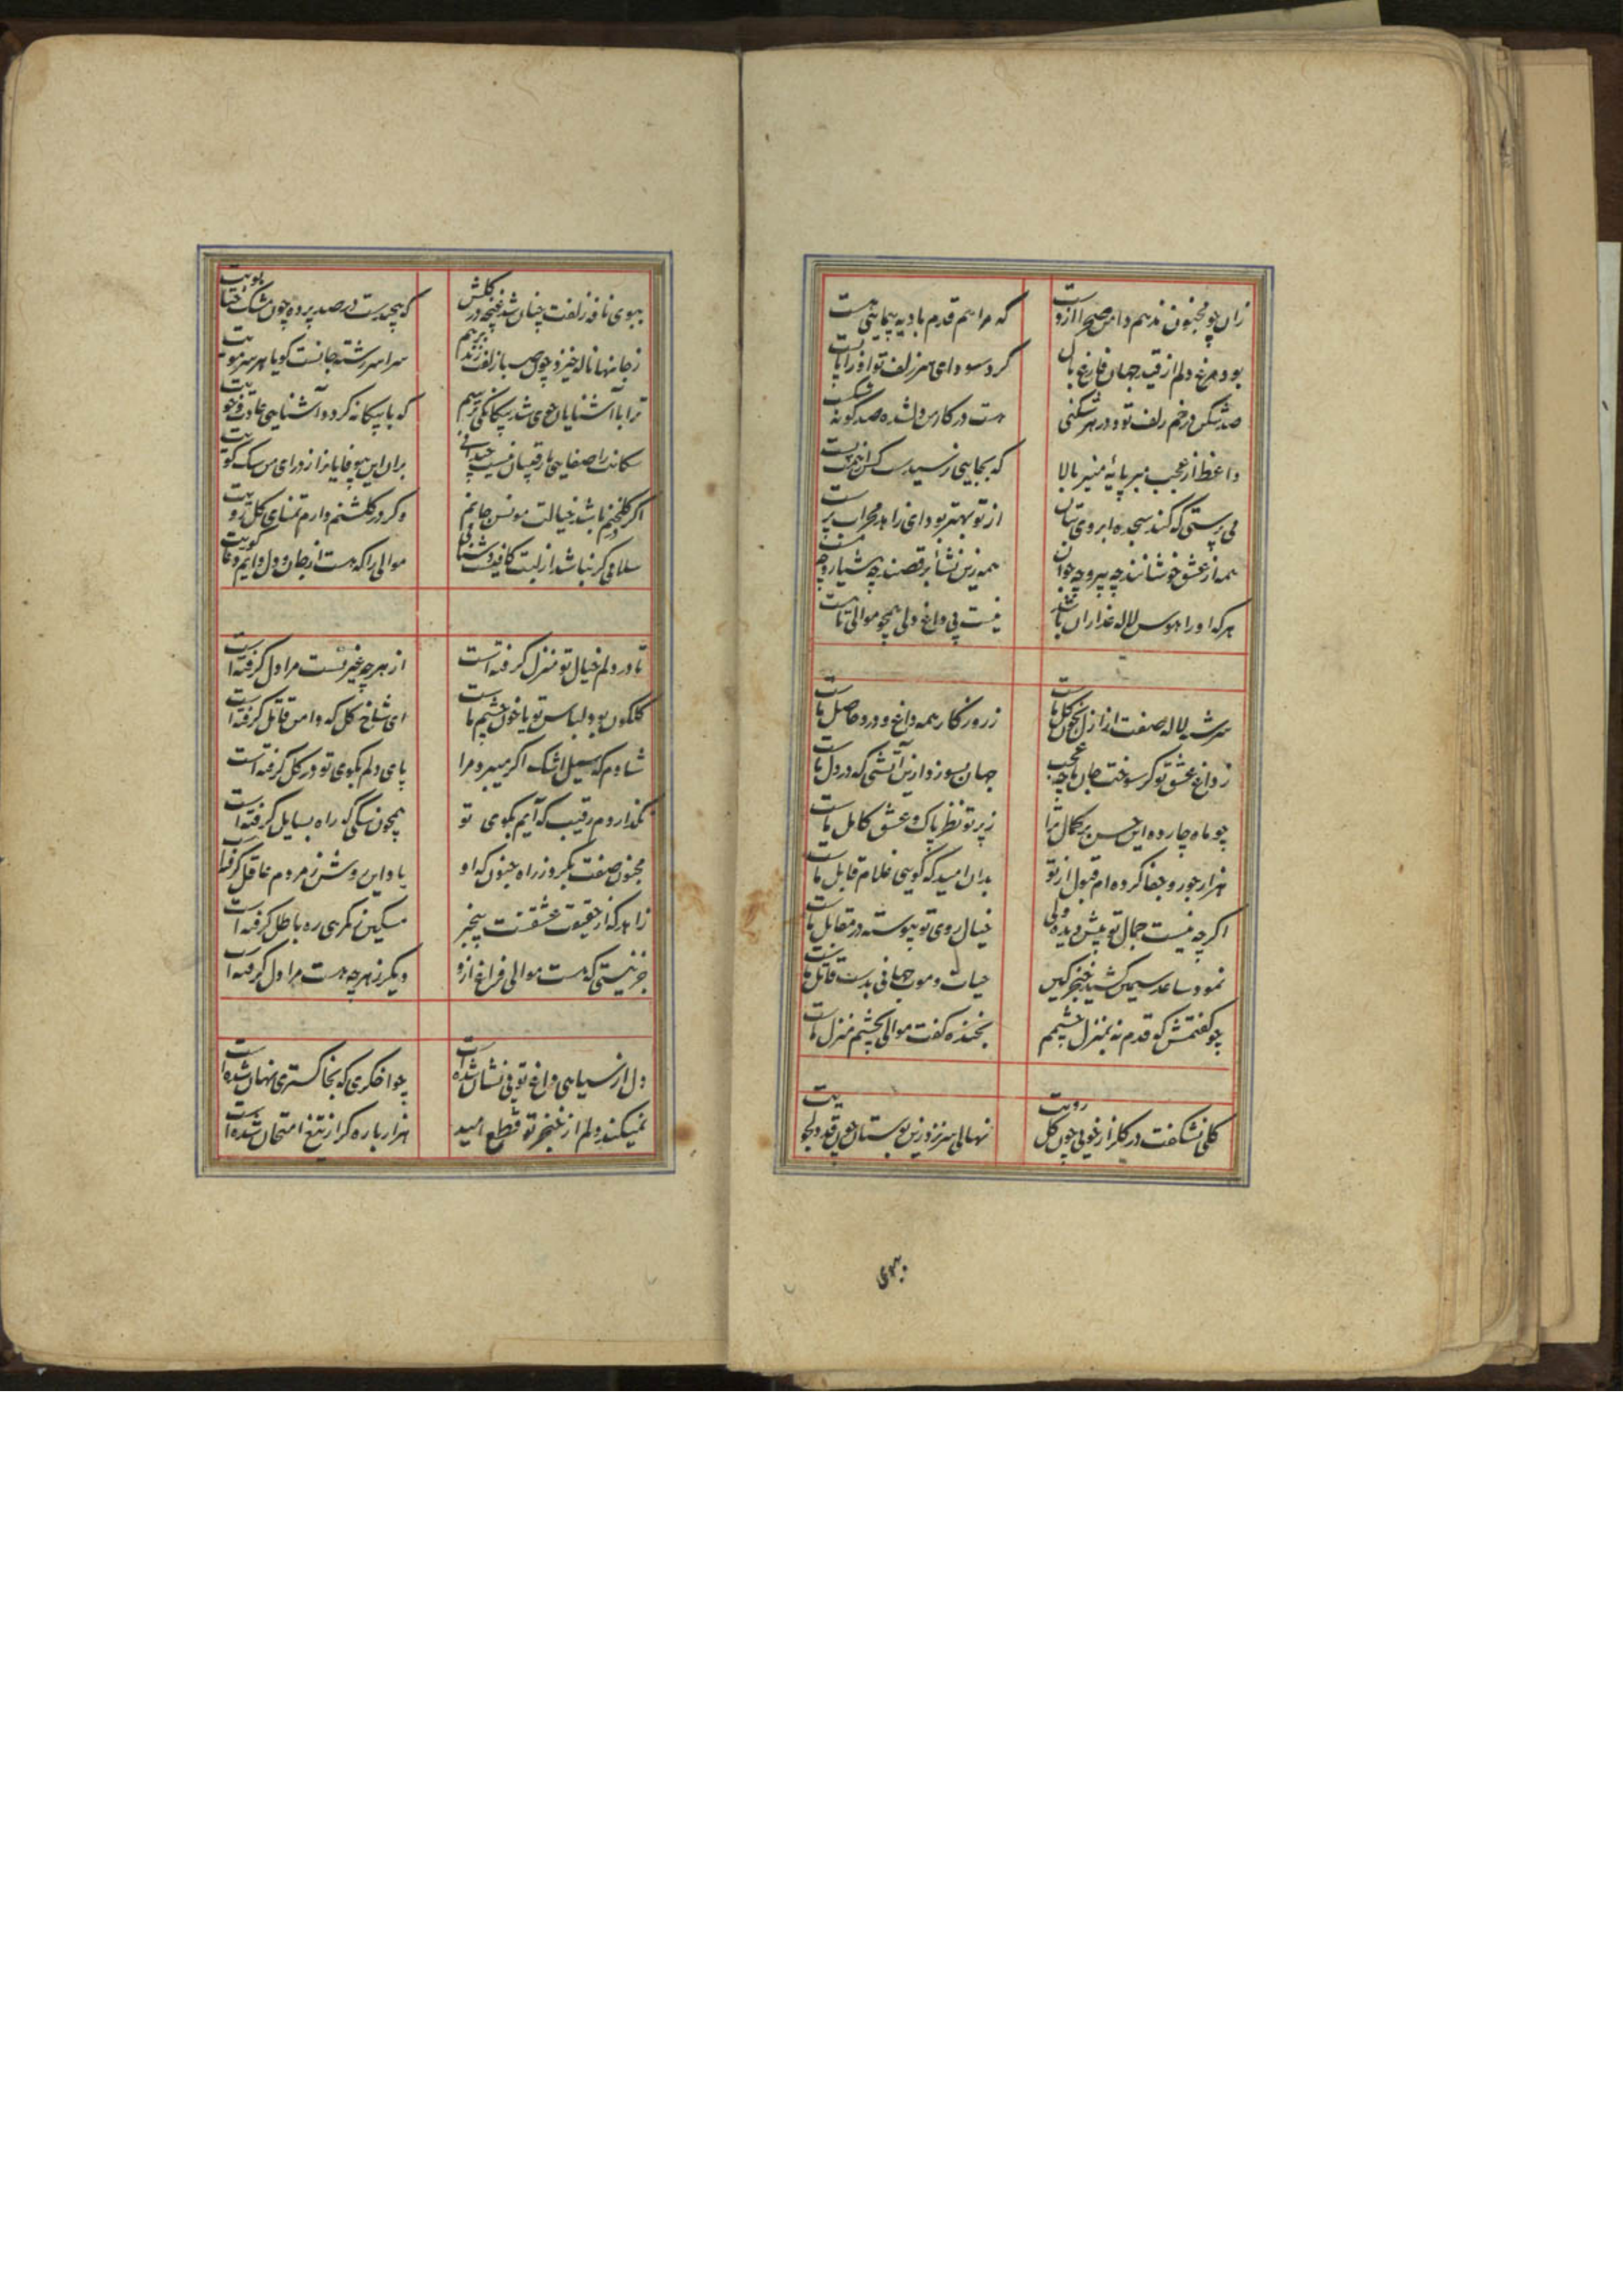 زان چو مجنون ندهم دامن صحرا از دست
که مرا هم قدم بادیه پیمایی هست
بود مرغ دلم از قید جهان فارغ بال
کرد سودای سر زلف تو او را پا بست
صد شکن در خم زلف تو و در هر شکنی
هست در کار من دل شده صد گونه شکست
واعظ از عجب مبر پایهٔ منبر بالا
که بجایی نرسیدست کس از
می پرستی که کند سجده ابروی بتان
از تو بهتر بود ای زاهد محراب پرست
همه از عشق خوشانند چه پیر و چه جوان
همه زین نشأ برقصند چه هشیار و چه مست
هر که او را هوس لاله عذاران باشد
نیست بی داغ دلی همچو موالی تا هست
سرشته لاله صفت از ازل بخون گل ماست
ز روزگار همه داغ و درد حاصل ماست
ز داغ عشق تو گر سوخت جان ما چه عجب
جهان بسوزد ازین آتشی که در دل ماست
چو ماه چارده این حسن بر کمال ترا
ز پرتو نظر پاک و عشق کامل ماست
هزار جور و جفا کرده‌ام قبول از تو
بدان امید که گویی غلام قابل ماست
اگر چه نیست جمال تو پیش دیده ولی
خیال روی تو پیوسته در مقابل ماست
نمود ساعد سیمین کشید خنجر کین
حیات و موت جهانی بدست قاتل ماست
چو گفتمش که قدم نه بمنزل چشمم
بخنده گفت موالی بچشم منزل ماست
گلی نشکفت در گلزار خوبی چون گل رویت
نهالی سر نزد زین بوستان چون قد دلجویت
ببوی
ببوی نافه زلفت چنان شد غنچه در گلشن
که پیچیدست در صد پرده چون مشک ختا بویت
ز جانها ناله خیزد چون صبا زلفت زند بر هم
سراسر رشته جانست گویا هر سر مویت
ترا با آشنایان خوی شد بیگانگی ترسم
که با بیگانه گردد آشنایی عادت و خویت
سگانت را صفایی با رقیبان نیست
بران این بیوفایانرا ز در ای من سگ کویت
اگر گلخن باشد خیالت مونس جانم
وگر در گلشنم دارم تمنای گل رویت
سلامی گر نباشد از لبت کافیست دشنامی
موالی را که هست از جان و دل دایم دعا گویت
تا در دلم خیال تو منزل گرفته است
از هر چه غیر تست مرا دل گرفته است
گلگون بود لباس تو یا خون چشم ماست
ای شاخ گل که دامن قاتل گرفته است
شادم که سیل اشک اگر میبرد مرا
پای دلم بکوی تو در گل گرفته است
نگذاردم رقیب که آیم بکوی تو
همچون سگی که راه بسایل گرفته است
مجنون صفت بگیر و ز راه جنون که او
یاد این روش ز مردم عاقل گرفته است
زاهد که از حقیقت عشقت بیخبر
مسکین ز گمرهی ره باطل گرفته است
جز نیستی که هست موالی فراغ ازو
دیگر ز هر چه هست مرا دل گرفته است
دل از سیاهی داغ تو بی نشان شده است
چو اخگری که بخاکستری نهان شده است
نمیکند دلم از خنجر تو قطع امید
هزار باره گر از تیغ امتحان شده است